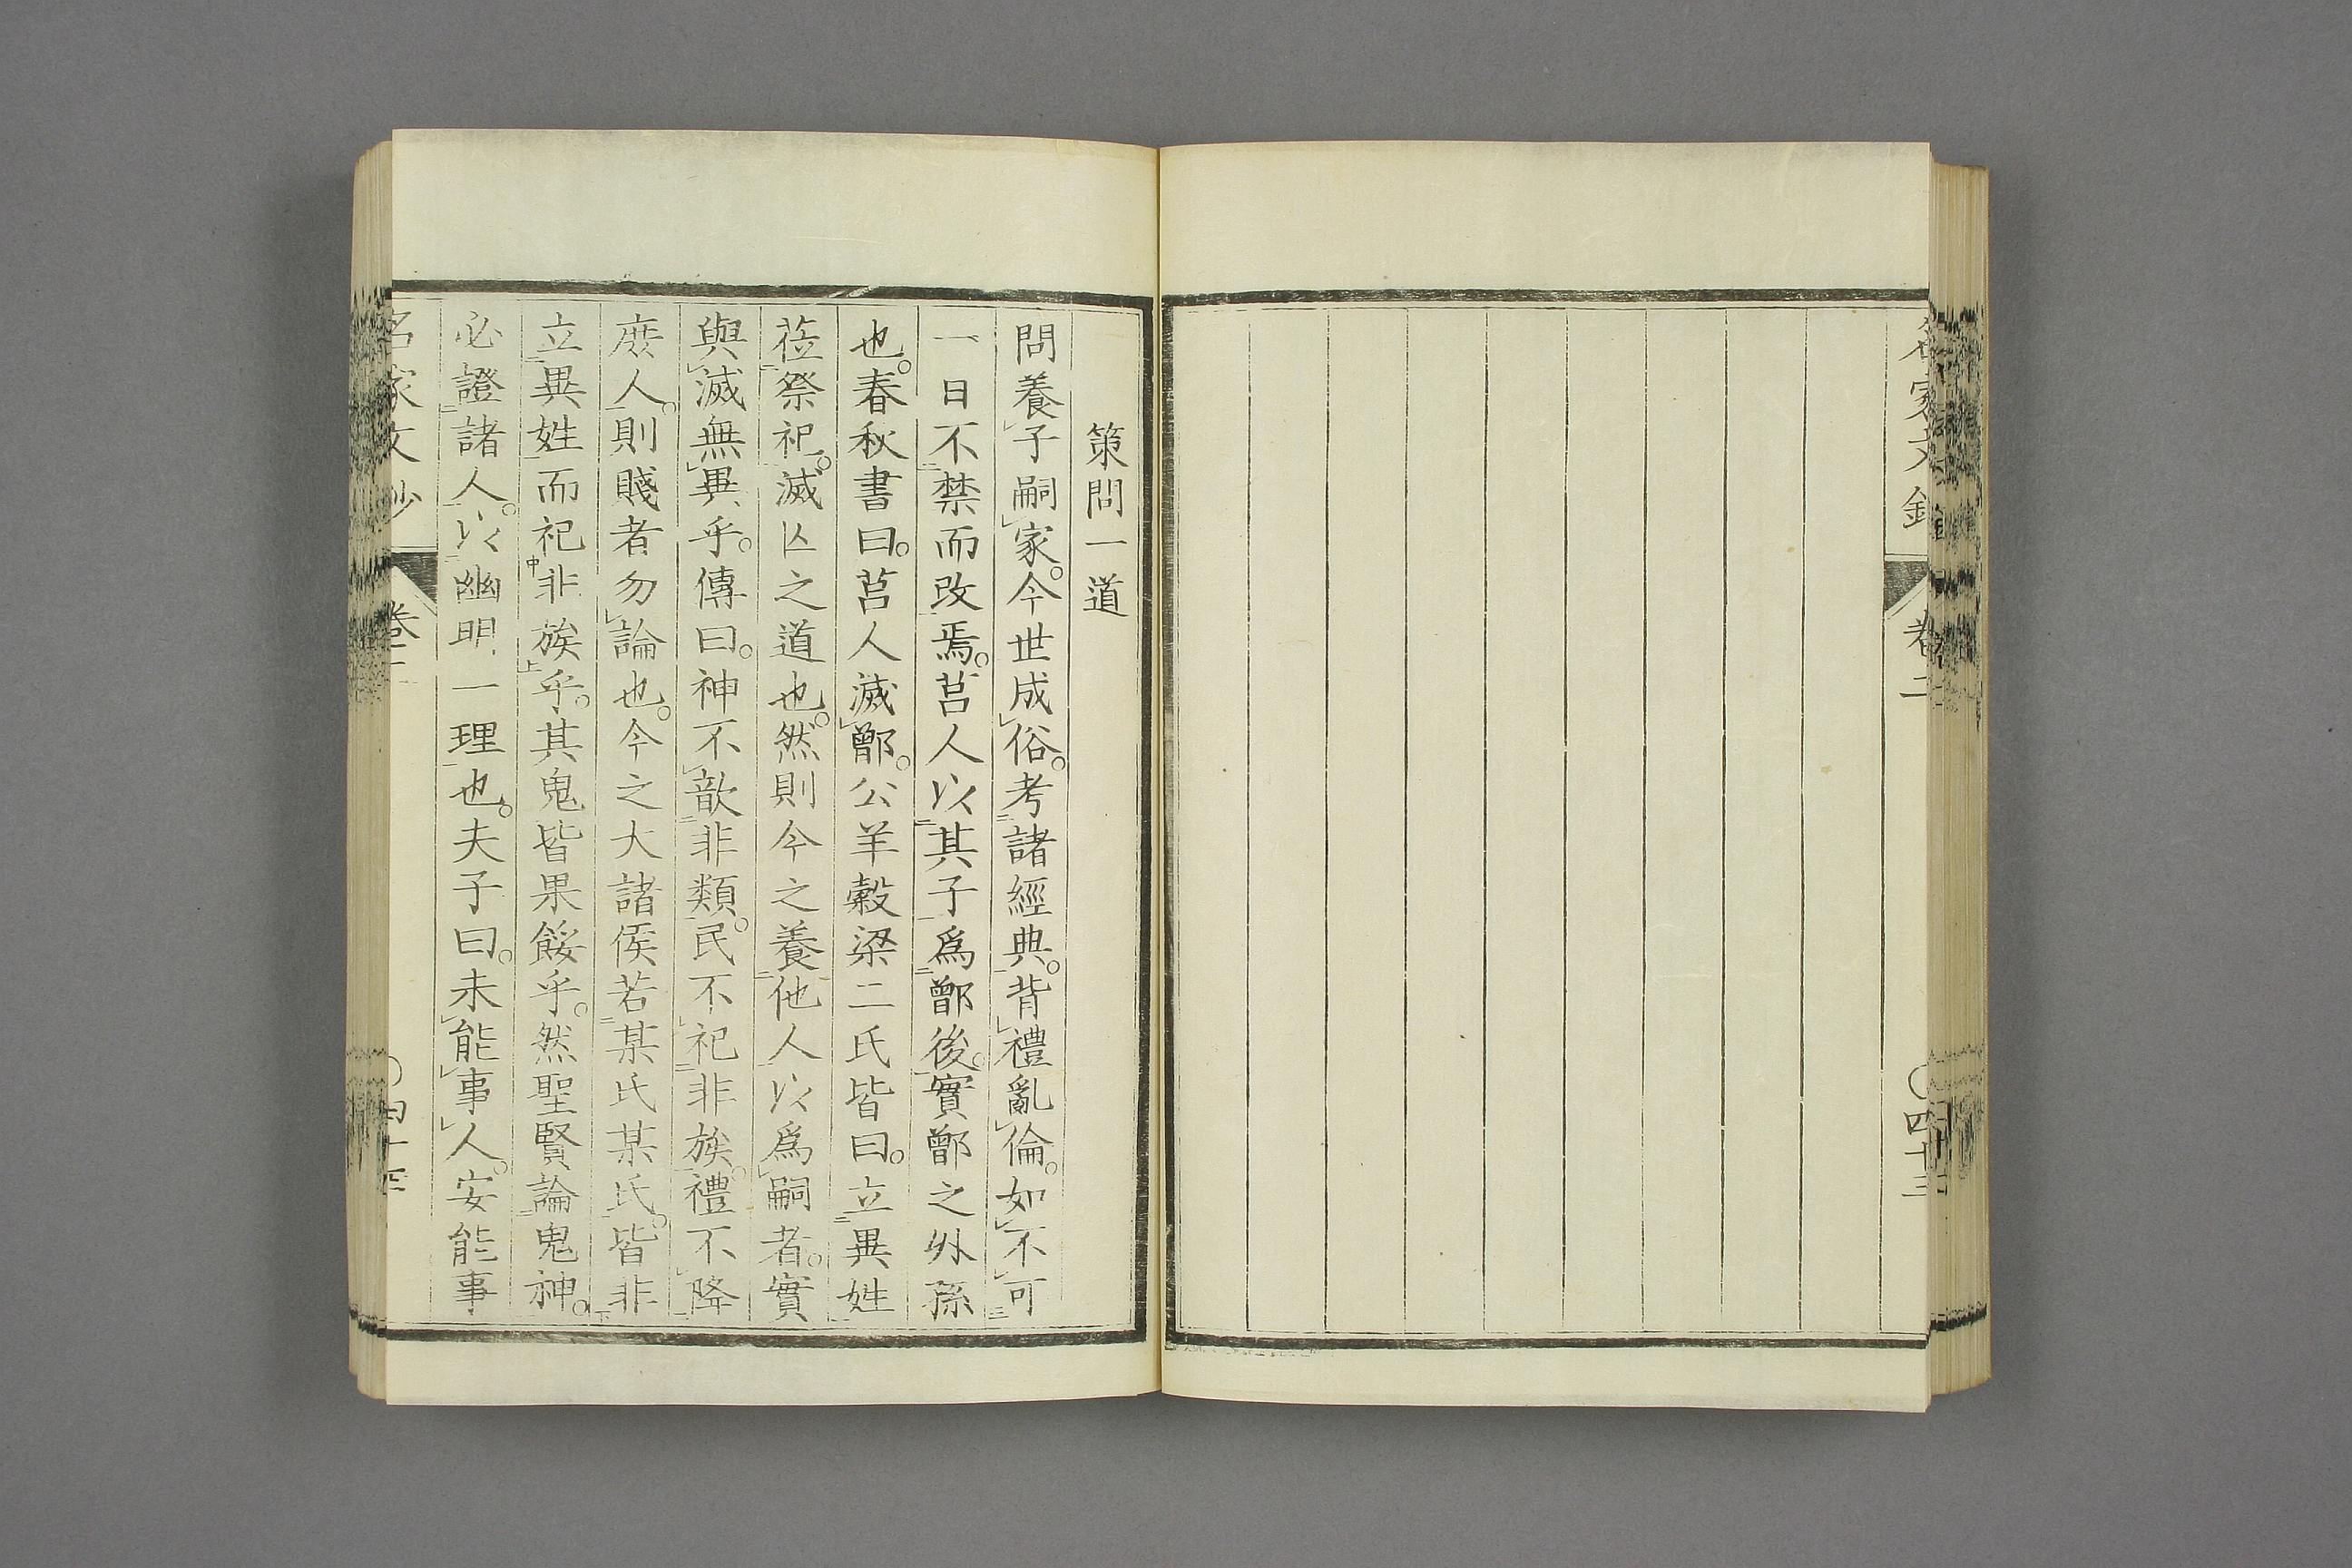 名家文鈔
卷二
〇四十三
策問一道
問養子嗣家。今世成俗。考諸經典。背禮亂倫。如不可
一日不禁而改焉。莒人以其子爲鄫後。實鄫之外孫
也。春秋書曰。莒人滅鄫。公羊穀梁二氏皆曰。立異姓
莅祭祀。滅亾之道也。然則今之養他人以爲嗣者。實
與滅無異乎。傳曰。神不歆非類。民不祀非族。禮不降
庶人。則賤者勿論也。今之大諸侯若某氏某氏。皆非
立異姓而祀非族乎。其鬼皆果餒乎。然聖賢論鬼神。
必證諸人。以幽明一理也。夫子曰。未能事人。安能事
名家文鈔
卷二
〇四十四